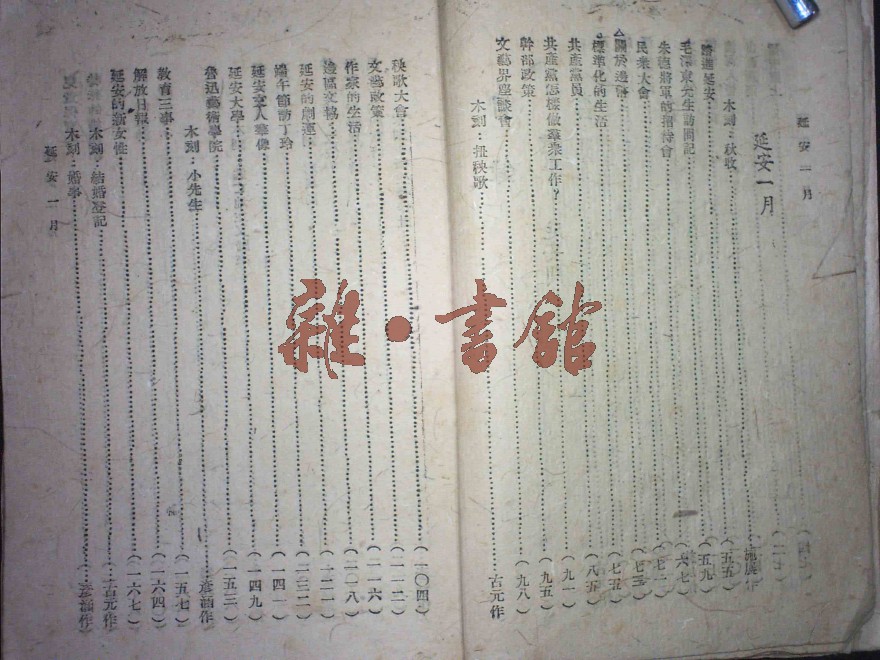 延安一月
延安一月
木刻：秋收……施展作
（五五）
踏進延安……（五九）
毛澤東先生訪問記……（六七）
朱德將軍的招待會……（七二）
民衆大會……（七三）
△關於邊幣……（七五）
標準化的生活……（八五）
共產黨員……（九一）
共產黨怎樣做羣衆工作？……（九五）
幹部政策……（九八）
文藝界座談會
木刻：扭秧歌……古元作
秧歌大會……（一〇四）
文藝政策……（一一二）
作家的生活……（一一六）
邊區文協
延安的劇運
端午節訪丁玲
延安文人羣像……（一四一）
延安大學……（一四九）
魯迅藝術學院……（一五三）
木刻：小先生……彥涵作
教育三事……（一五七）
解放日報……（一六四）
延安的新女性……（一六七）
木刻：結婚登記……古元作
木刻：婚事……彥涵作
延安一月
雜·書館